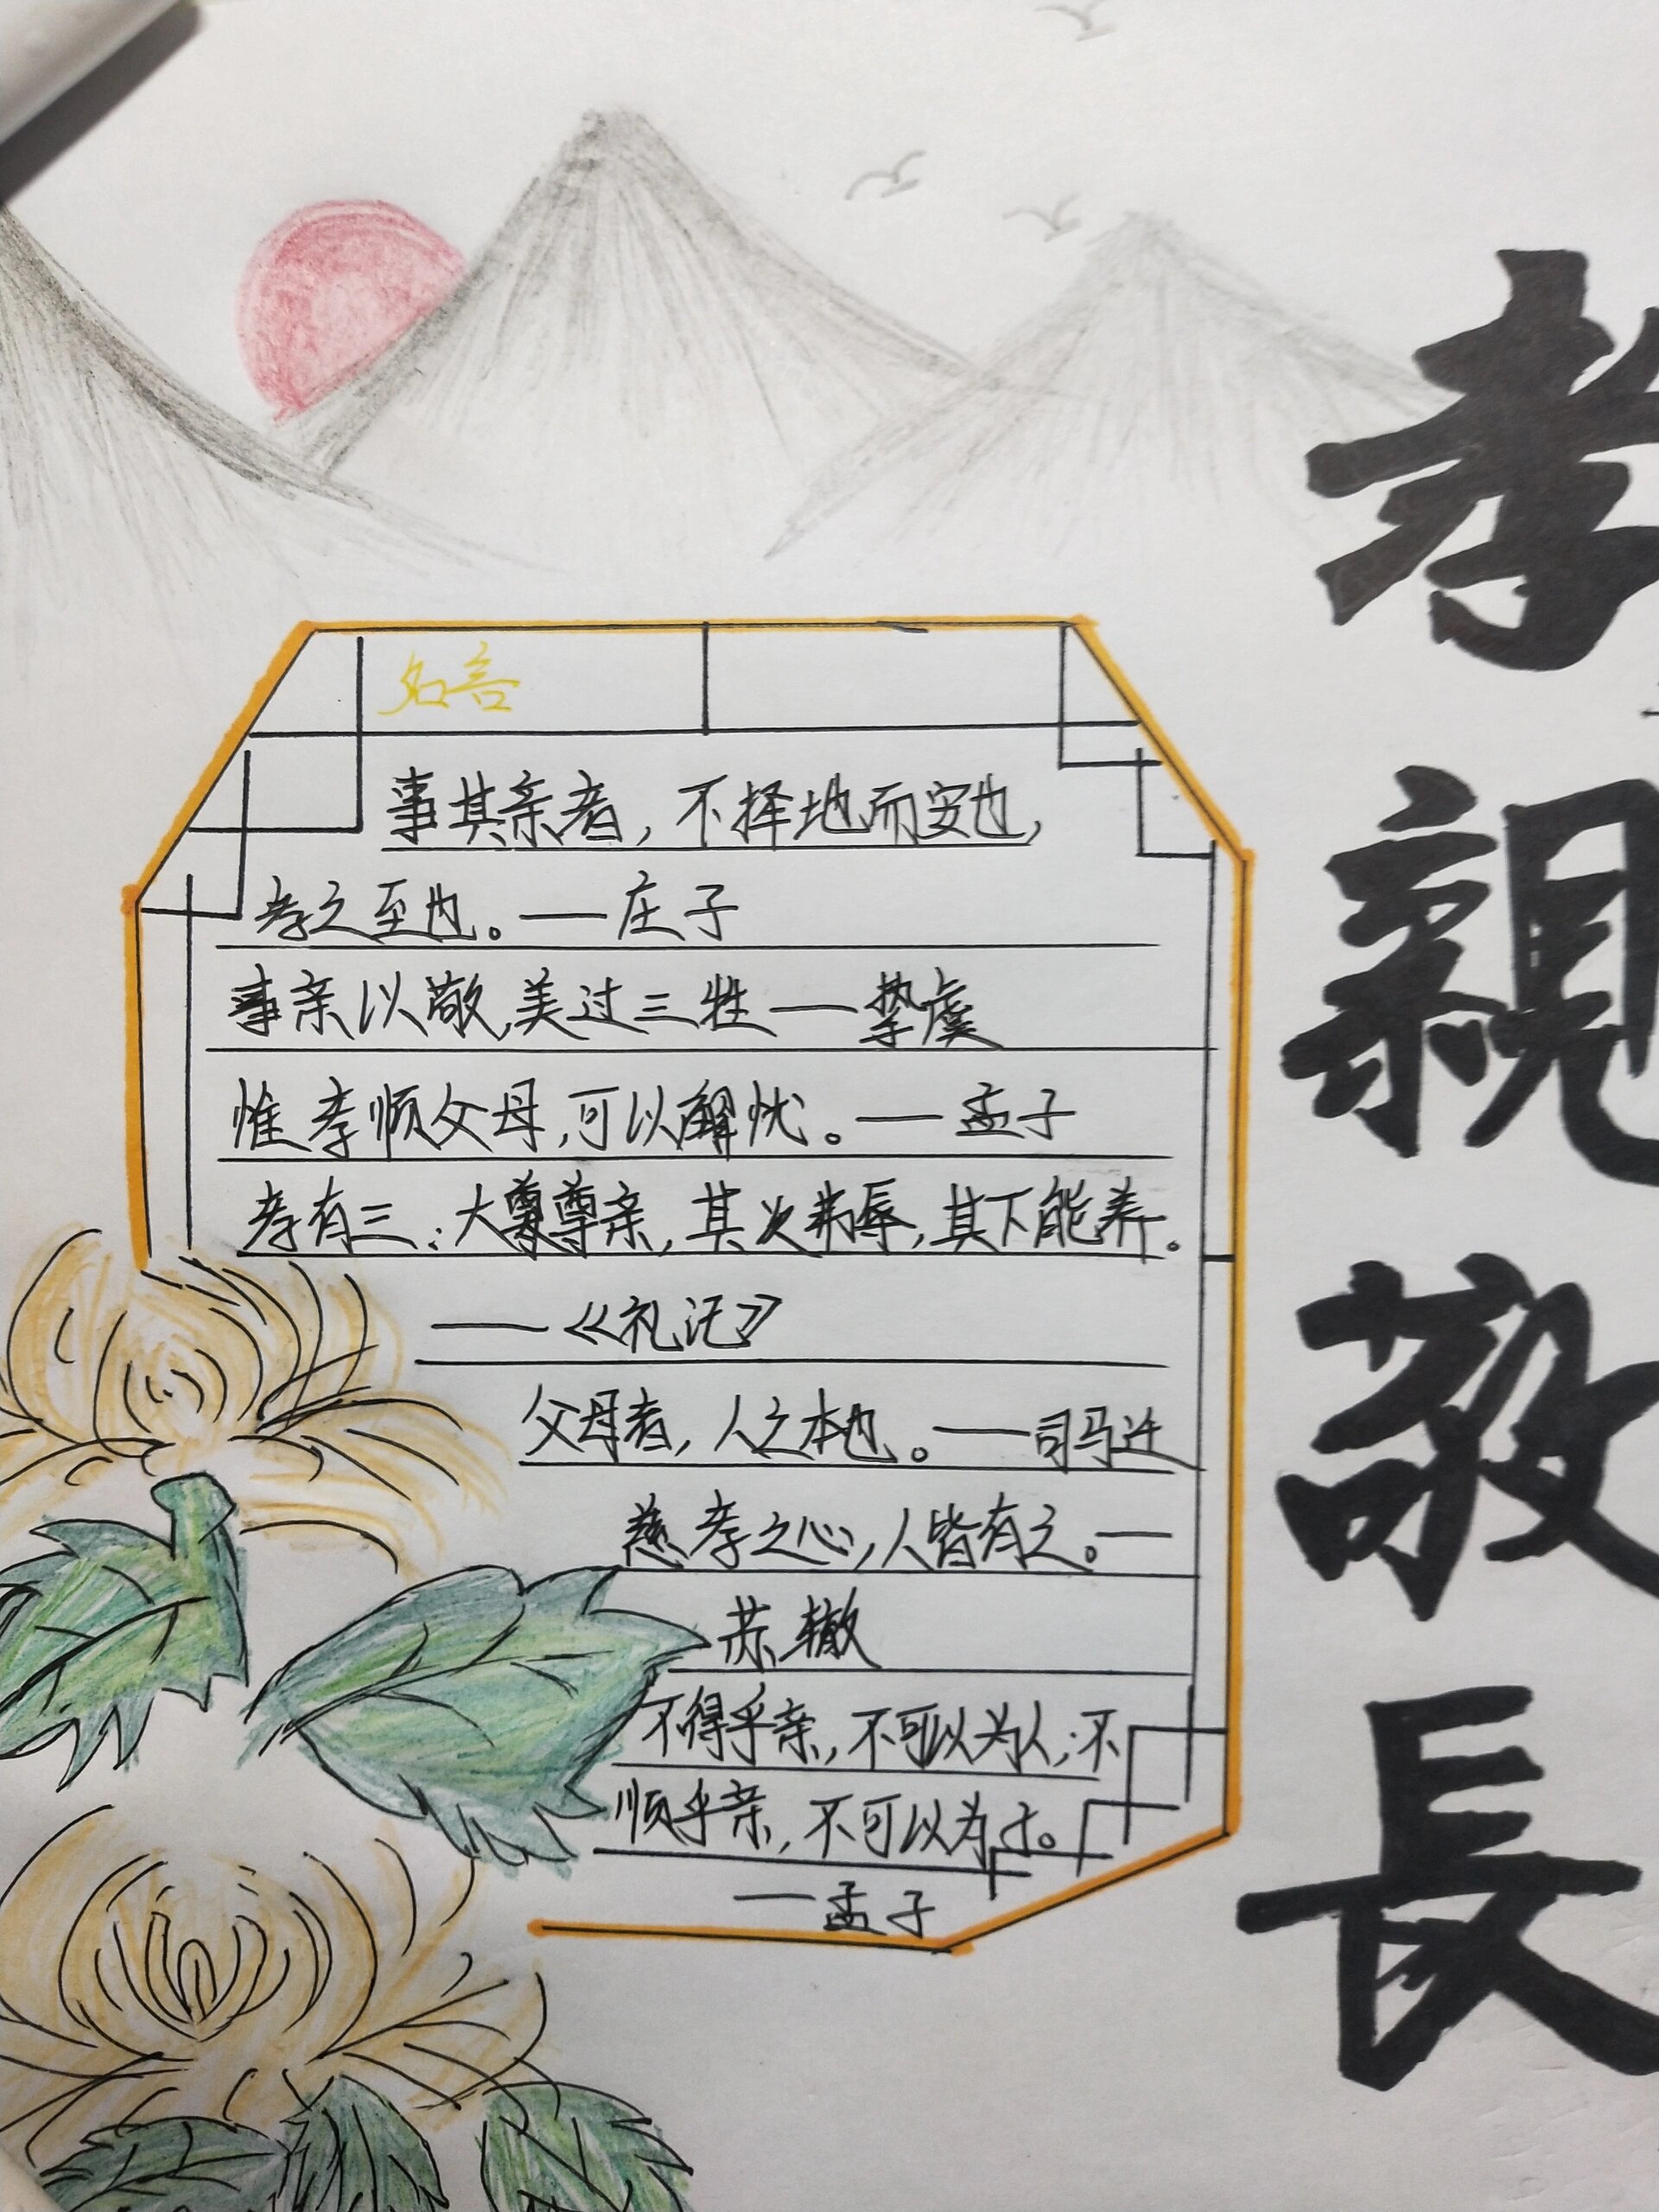 名言
事其亲者，不择地而安也，
孝之至也。——庄子
事亲以敬，美过三牲——挚虞
惟孝顺父母，可以解忧。——孟子
孝有三：大尊尊亲，其次弗辱，其下能养。
——《礼记》
父母者，人之本也。——司马迁
慈孝之心，人皆有之。—
苏辙
不得乎亲，不可以为人；不
顺乎亲，不可以为子。
——孟子
孝親敬長